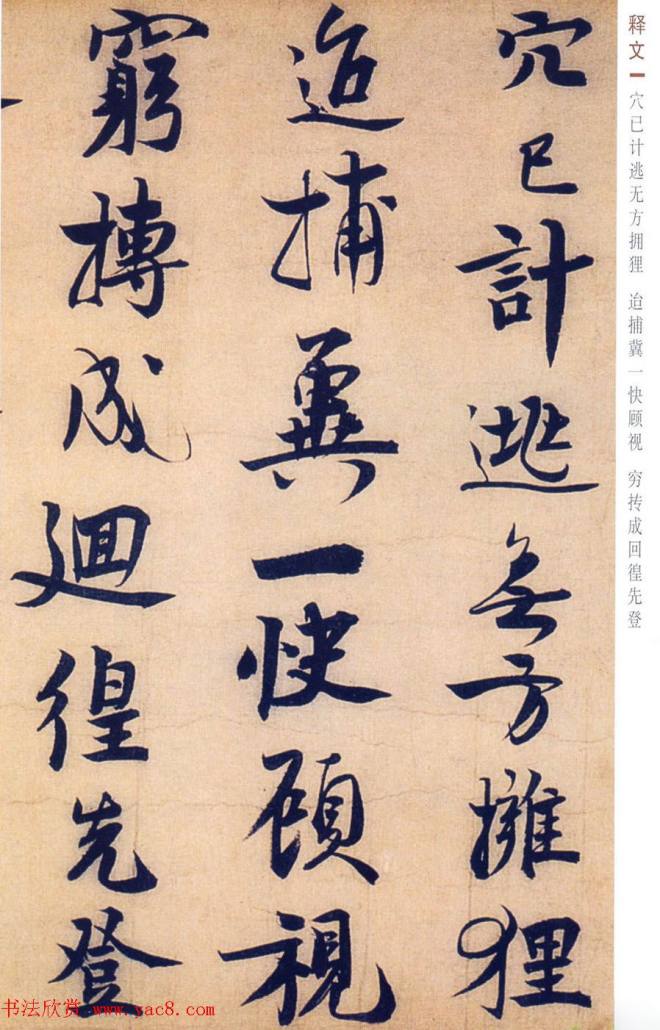 穴已計逃無方擁狸
迨捕冀一快顧視
窮摶成迴徨先登
释文 穴已计逃无方拥狸 迨捕冀一快顾视 穷抟成回徨先登
书法欣赏 www.yac8.com